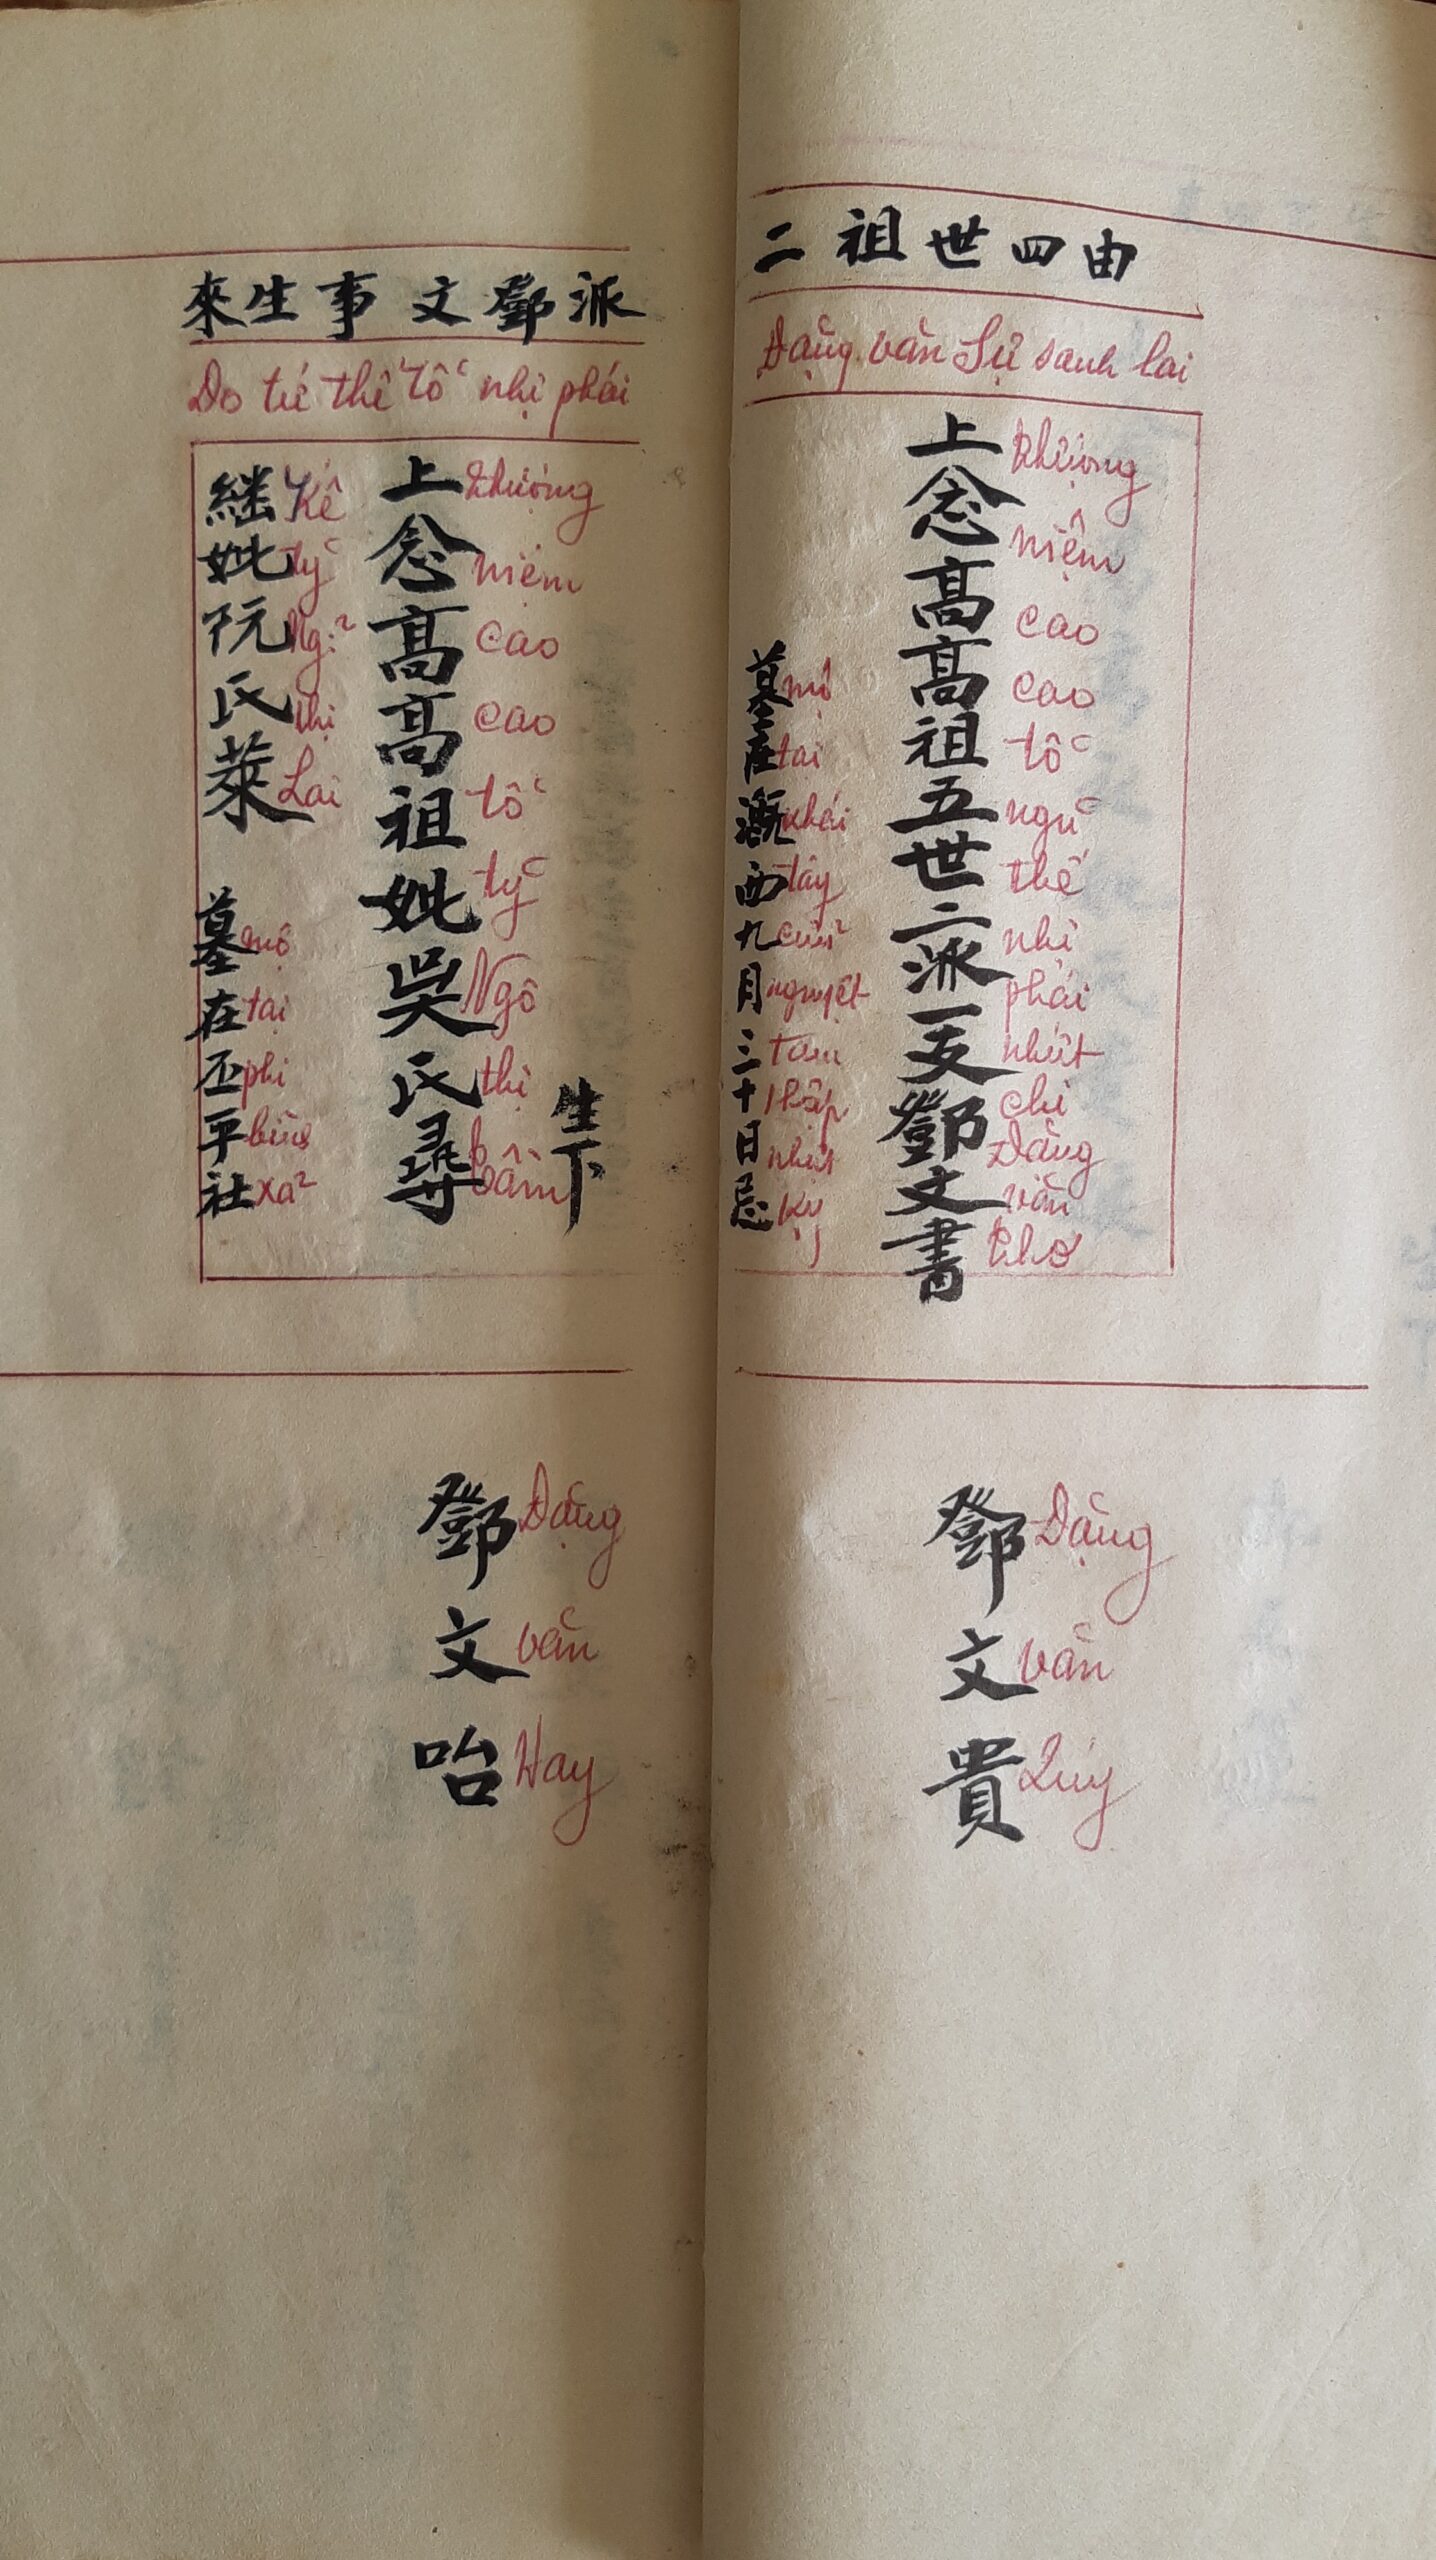 由四世祖二
Đặng văn Sự sanh lai
上念高高祖五世二派一支鄧文書
thượng niệm cao cao tổ ngũ thế nhị phái nhứt chi Đặng văn thơ
墓在溉西九月三十日忌
mộ tại khái tây cửu nguyệt tam thập nhựt kỵ
鄧文貴
Đặng văn Quý
派鄧文事生來
Do tứ thế tổ nhị phái
生下
上念高高祖妣吳氏尋
thượng niệm cao cao tổ tỷ Ngô thị Tầm
継妣阮氏萊
Kế tỷ Ng: thị Lai
墓在丕平社
mộ tại phi bình xã
鄧文咍
Đặng văn Hay